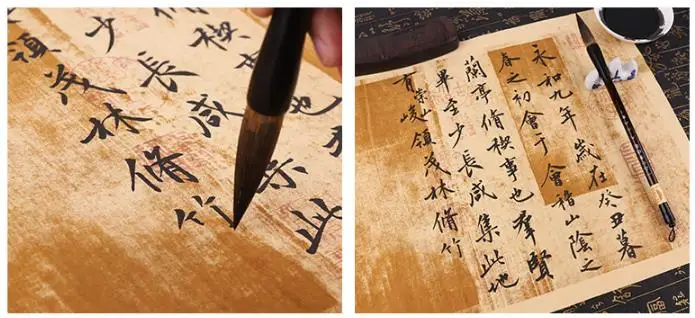 禊 也
少長咸集此
領茂林脩竹
永和九年歲在癸丑暮
春之初會于會稽山陰之
蘭亭脩禊事也羣賢
畢至少長咸集此地
有崇山峻領茂林脩竹